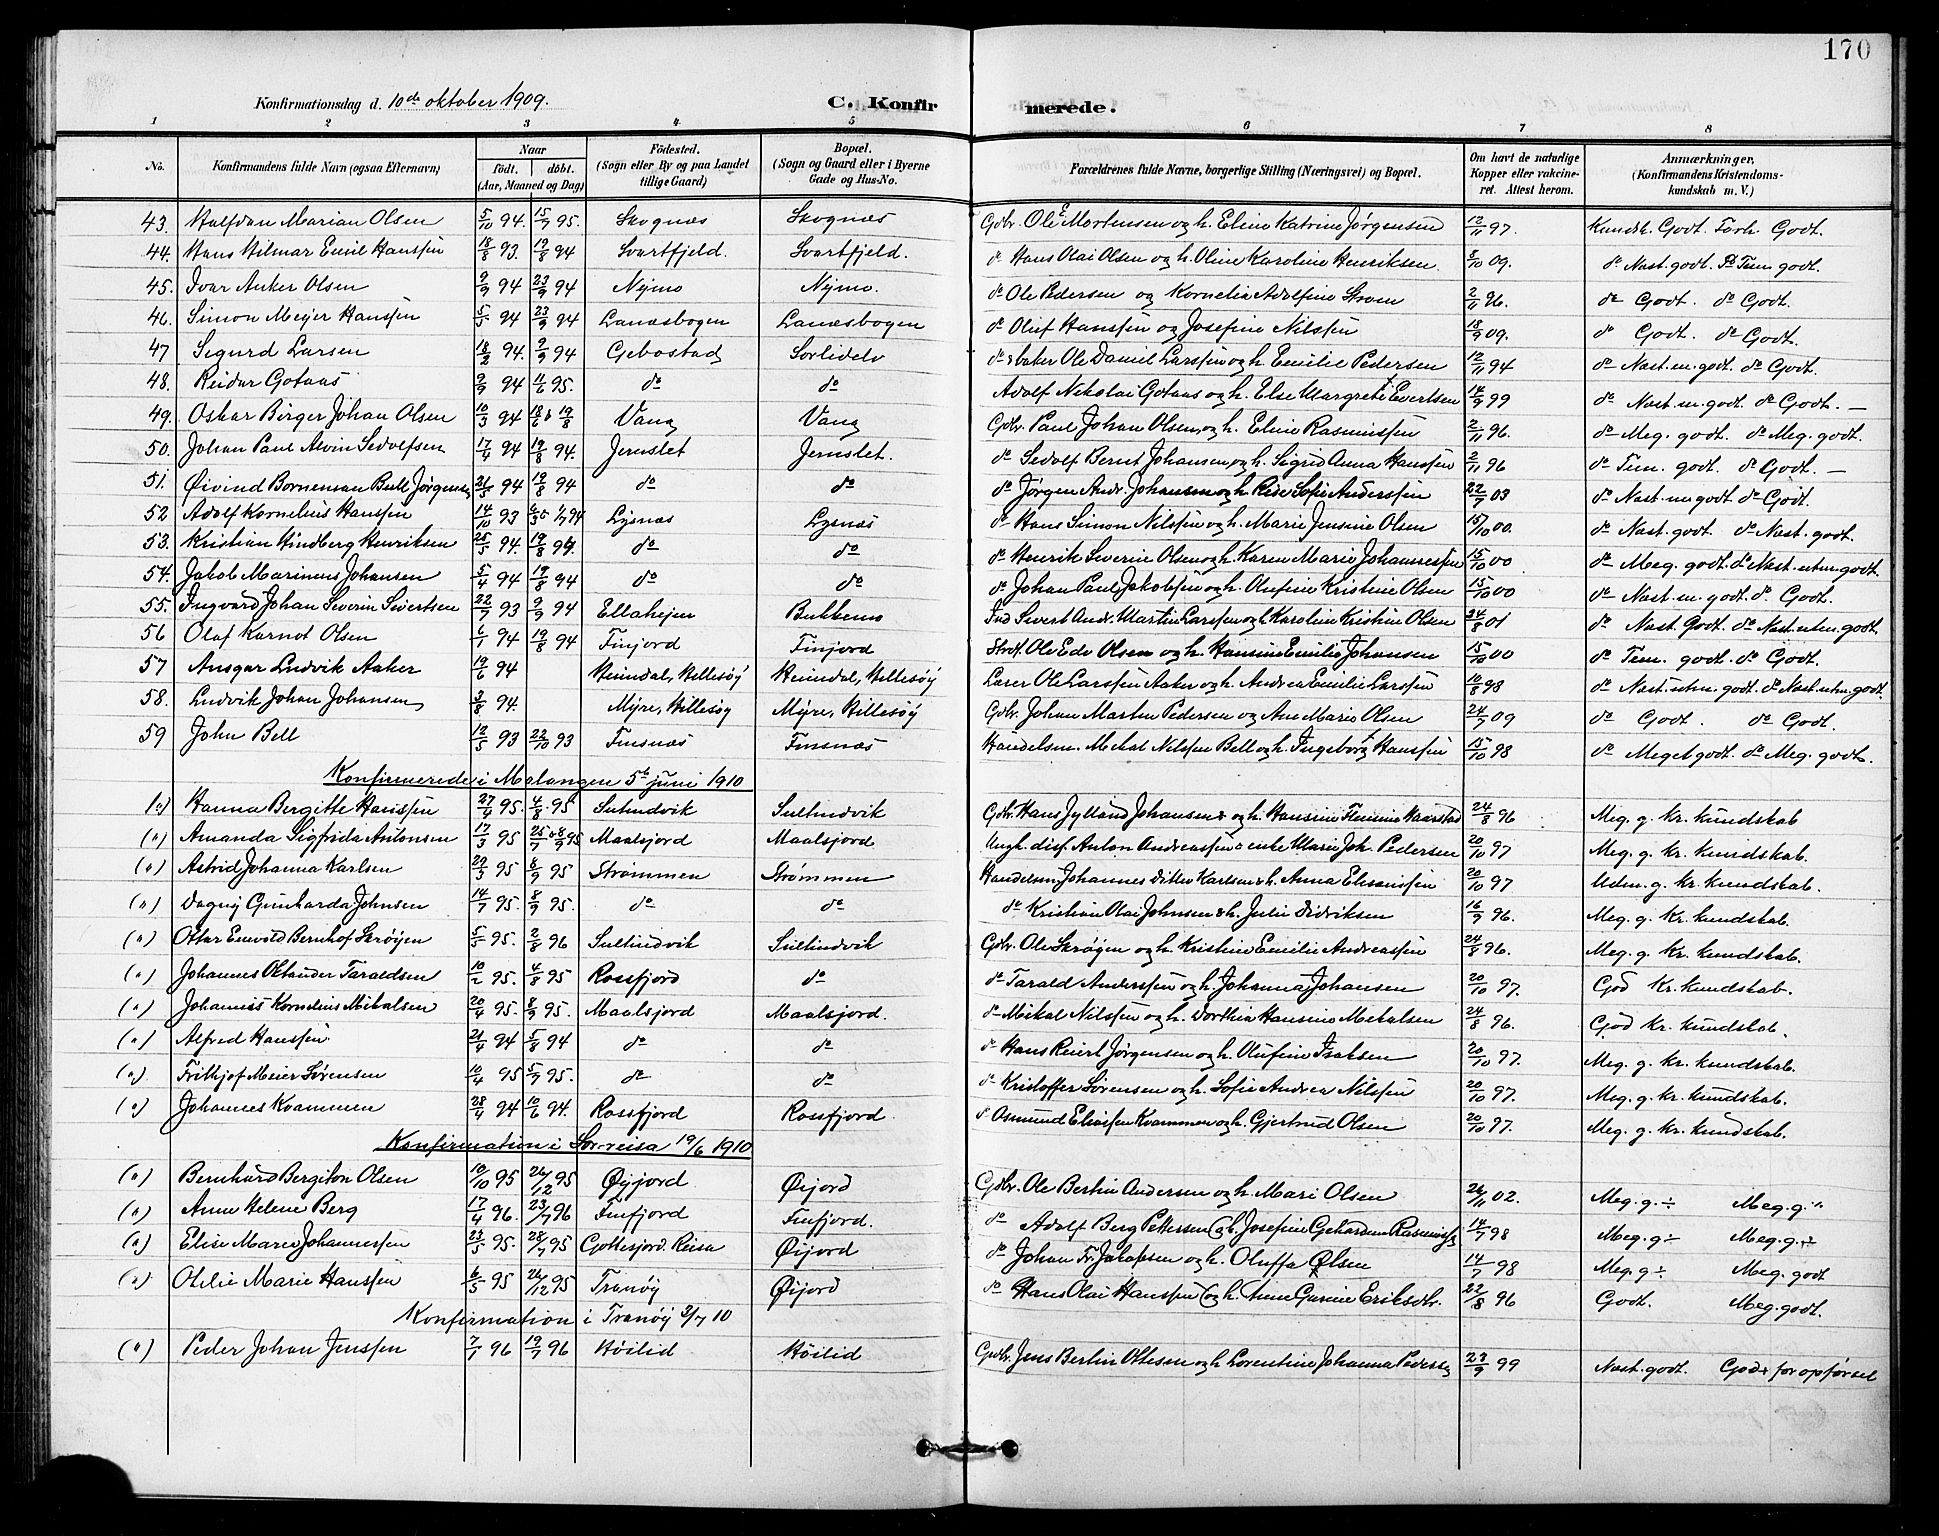 170
Konfirmationsdag d. 10de oktober 1909.
C. Konfirmerede.
1 2 3 4 5 6 7 8
No. Konfirmandens fulde Navn (ogsaa Efternavn) Naar født. døbt. (Aar, Maaned og Dag) Fødested. (Sogn eller By og paa Landet tillige Gaard) Bopæl. (Sogn og Gaard eller i Byerne Gade og Hus-No. Forældrenes fulde Navne, borgerlige Stilling (Næringsvei) og Bopæl. Om havt de naturlige Kopper eller vakcineret. Attest herom. Anmærkninger, (Konfirmandens Kristendomskundskab m. V.)
43. Halfdan Marian Olsen 5/10 94. 15/7 95. Skognæs Skognæs Gbr. Ole Mortensen og h. Eline Katrine Jørgensen 12/11 97. Kundsk. Godt. Forh. Godt.
44. Hans Hilmar Emil Hanssen 18/8 93. 19/8 94 Svartfjeld. Svartfjeld. do Hans Olai Olsen og h. Oline Karoline Henriksen. 8/10 09. do Næst. godt. do Tem. godt.
45. Ivar Anker Olsen 9/9 94 23/9 94 Nymo Nymo. do Ole Pedersen og Kornelia Adolfine Strøm 2/11 96. do Godt. do Godt.
46. Simon Meyer Hanssen 5/5 94 23/9 94 Lanæsbogen Lanæsbogen do Oluf Hanssen og Josefine Nilssen 18/9 09. do Godt. do Godt.
47 Sigurd Larsen 18/2 94. 9/9 94 Gebostad Sørlidelv do & baker Ole Daniel Larssen og h. Emilie Pedersen 12/11 94 do Næst. m. godt. do Godt.
48. Reidar Gotaas 9/9 94 11/6 95. do do Adolf Nikolai Gotaas og h. Else Margrete Evertsen 14/9 99 do Næst. m. godt. do Godt. —
49. Oskar Birger Johan Olsen 10/3 94 18/6 & 19/8 Vang Vang Gbr. Paul Johan Olsen og h. Eline Rasmussen 2/11 96. do Meg. godt. do Meg. godt.
50. Johan Paul Alvin Sedolfsen 17/4 94 19/8 94. Jernslet Jernslet. do Sedolf Bernt Johansen og h. Sigrid Anna Hanssen 2/11 96 do Tem. godt. do Godt. —
51. Øivind Borneman Bull Jørgensen 21/5 94 19/8 94 do do do Jørgen Andr. Johansen og h. Sofie Anderssen 22/7 03 do Næst. m. godt do Godt.
52 Adolf Kornelius Hanssen 14/10 93 94 Lysnæs Lysnæs do Hans Simon Nilssen og h. Marie Jensine Olsen 15/10 00. do Næst. godt. do Næst. godt.
53. Kristian Hindberg Henriksen 25/5 94. 19/8 94. do do do Henrik Severin Olsen og h. Karen Marie Johannessen 15/10 00 do Meg. godt. do Næst. utm. godt.
54. Jakob Marinius Johansen 5/4 94 19/8 94 do do do Johan Paul Jakobsen og h. Olufine Kristine Olsen 15/10 00 do Næst. m. godt. do Godt.
55. Ingvard Johan Severin Sivertsen 22/7 93 9/9 94 Ellahejen Bukkemo Ind Sivert Andr. Martin Larssen og h Karoline Kristine Olsen 24/8 01 do Næst. Godt. do Næst. utm. godt.
56 Olaf Karnot Olsen 6/1 94 19/8 94 Finjord Finjord Strdt. Ole Edv Olsen og h. Hansine Emilie Johansen 15/10 00 do Tem. godt. do Godt.
57 Ansgar Ludvik Aaker 19/6 94 Heimdal, Hillesøy Heimdal, Hillesøy Lærer Ole Larssen Aaker og h. Andrea Emilie Larssen 10/8 98 do Næst. utm. godt. do Næst. utm. godt.
58. Ludvik Johan Johansen 3/8 94. Myre, Hillesøy Myre, Hillesøy Gbr. Johan Martin Pedersen og Ane Marie Olsen 24/7 09 do Godt. do Godt.
59 John Bell 12/5 93 22/10 93 Finsnæs Finsnæs Handelsm. Mekal Nilssen Bell og h. Ingeborg Hanssen 15/10 98 do Meget godt. do Meg. godt.
Konfirmerede i Malangen 5te juni 1910
Hanna Bergitte Hanssen 27/4 95. 4/8 95 Sultindvik Sultindvik Gbr. Hans Jylland Johansen & h. Hansine Flemine Haarstad 24/8 96 Meg. g. Kr. kundskab
(") Amanda Sigfrida Antonsen 17/3 95 95 Maalsjord Maalsjord Ungk. disp. Anton Andreassen & enke Marie Joh. Pedersen 20/10 97 Meg. g. Kr. kundskab.
(") Astrid Johanna Karlsen 29/3 95 8/9 95 Strømmen Strømmen Handelsm Johannes Ditlev Karlsen & h. Anna Elisæussen 20/10 97 Udm. g. Kr. kundskab.
(") Dagny Gunharda Johnsen 14/7 95. 8/9 95. do do do Kristian Olai Johnsen & h. Julie Didriksen 16/9 96. Meg. g. Kr. kundskab.
(") Ottar Enevold Bernhof Skrøyen 5/5 95. 2/8 96 Sultindvik Sultindvik Gbr. Ole Skrøyen og h. Kristine Emilie Andreassen 24/8 96. Meg. g. Kr. kundskab.
(") Johannes Oktander Taraldsen 10/2 95. 4/8 95 Rossfjord do do Tarald Anderssen og h. Johanna Johansen 20/10 97. God Kr. kundskab.
(") Johannes Kornelius Mikalsen 20/4 95. 8/9 95. Maalsjord Maalsjord. do Mikal Nilssen og h. Dorthia Hansine Mekalsen 24/8 96. God Kr. kundskab.
(") Alfred Hanssen 21/4 94 5/8 94 do do do Hans Reiert Jørgensen og h. Olufine Isaksen 20/10 97. Meg. g. Kr. kundskab.
(") Frithjof Meier Sørensen 10/4 95 5/7 95. do do do Kristoffer Sørensen og h. Sofie Andrea Nilssen 20/10 97. Meg. g. Kr. kundskab.
(") Johannes Kvammen 28/4 94 10/6 94. Rossfjord Rossfjord do Osmund Eliassen Kvammen og h. Gjertrud Olsen 20/10 97. Meg. g. Kr. kundskab.
Konfirmation i Sørreisa 19/6 1910
(") Bernhard Bergiton Olsen 19/10 95 26/12 95 Øyjord Øijord Gbr. Ole Bertin Andersen og h. Mari Olsen 26/11 02. Meg. g. ÷ Meg. g. "
(") Anne Helene Berg 17/4 96. 23/7 96 Finfjord Finfjord. do Adolf Berg Pettersen og h. Josefine Gehardine 14/7 98 Meg. g ÷ Meg. g. ÷
(") Elise Maren Johannessen 23/5 95. 28/7 95 Gottesjord. Reisa Øijord do Johan Fr. Jakobsen og h. Oluffa Olsen 14/7 98 Meg. g ÷ Meg. godt
(") Otelie Marie Hanssen 6/5 95 26/12 95 Tranøy Øijord do Hans Olai Hanssen og h. Anne Gurine Eriksdtr. 22/8 96 Godt. Meg. godt.
Konfirmation i Tranøy 3/7 10
(") Peder Johan Jenssen 7/7 96 19/7 96 Høilid Høilid Gbr. Jens Bertin Ottesen og h Lorentine Johanna Peders 23/9 99 Næst. godt. Godt for opførsel